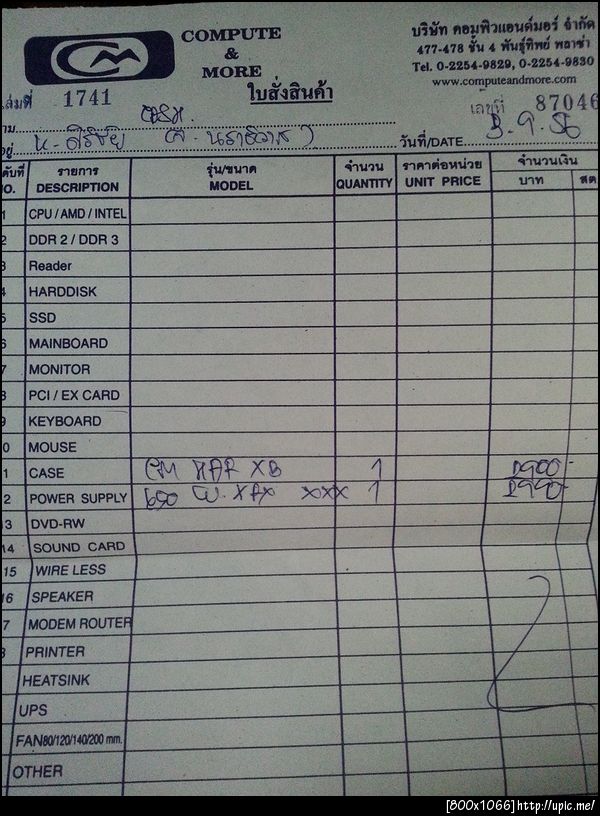 COMPUTE
&
MORE
บริษัท คอมพิวแอนด์มอร์ จำกัด
477-478 ชั้น 4 พันธุ์ทิพย์ พลาซ่า
Tel. 0-2254-9829, 0-2254-9830
www.computeandmore.com
ใบสั่งสินค้า
เล่มที่ 1741
เลขที่ 87046
วันที่/DATE 3. 9. 56
รายการ รุ่น/ขนาด จำนวน ราคาต่อหน่วย จำนวนเงิน
NO. DESCRIPTION MODEL QUANTITY UNIT PRICE บาท สต
1 CPU / AMD / INTEL
2 DDR 2 / DDR 3
3 Reader
4 HARDDISK
5 SSD
6 MAINBOARD
7 MONITOR
8 PCI / EX CARD
9 KEYBOARD
0 MOUSE
1 CASE CM HAF XB 1
2 POWER SUPPLY 650 1 2990
13 DVD-RW
14 SOUND CARD
15 WIRE LESS
16 SPEAKER
7 MODEM ROUTER
8 PRINTER
HEATSINK
UPS
FAN80/120/140/200 mm.
OTHER
[800x1066]http://upic.me/